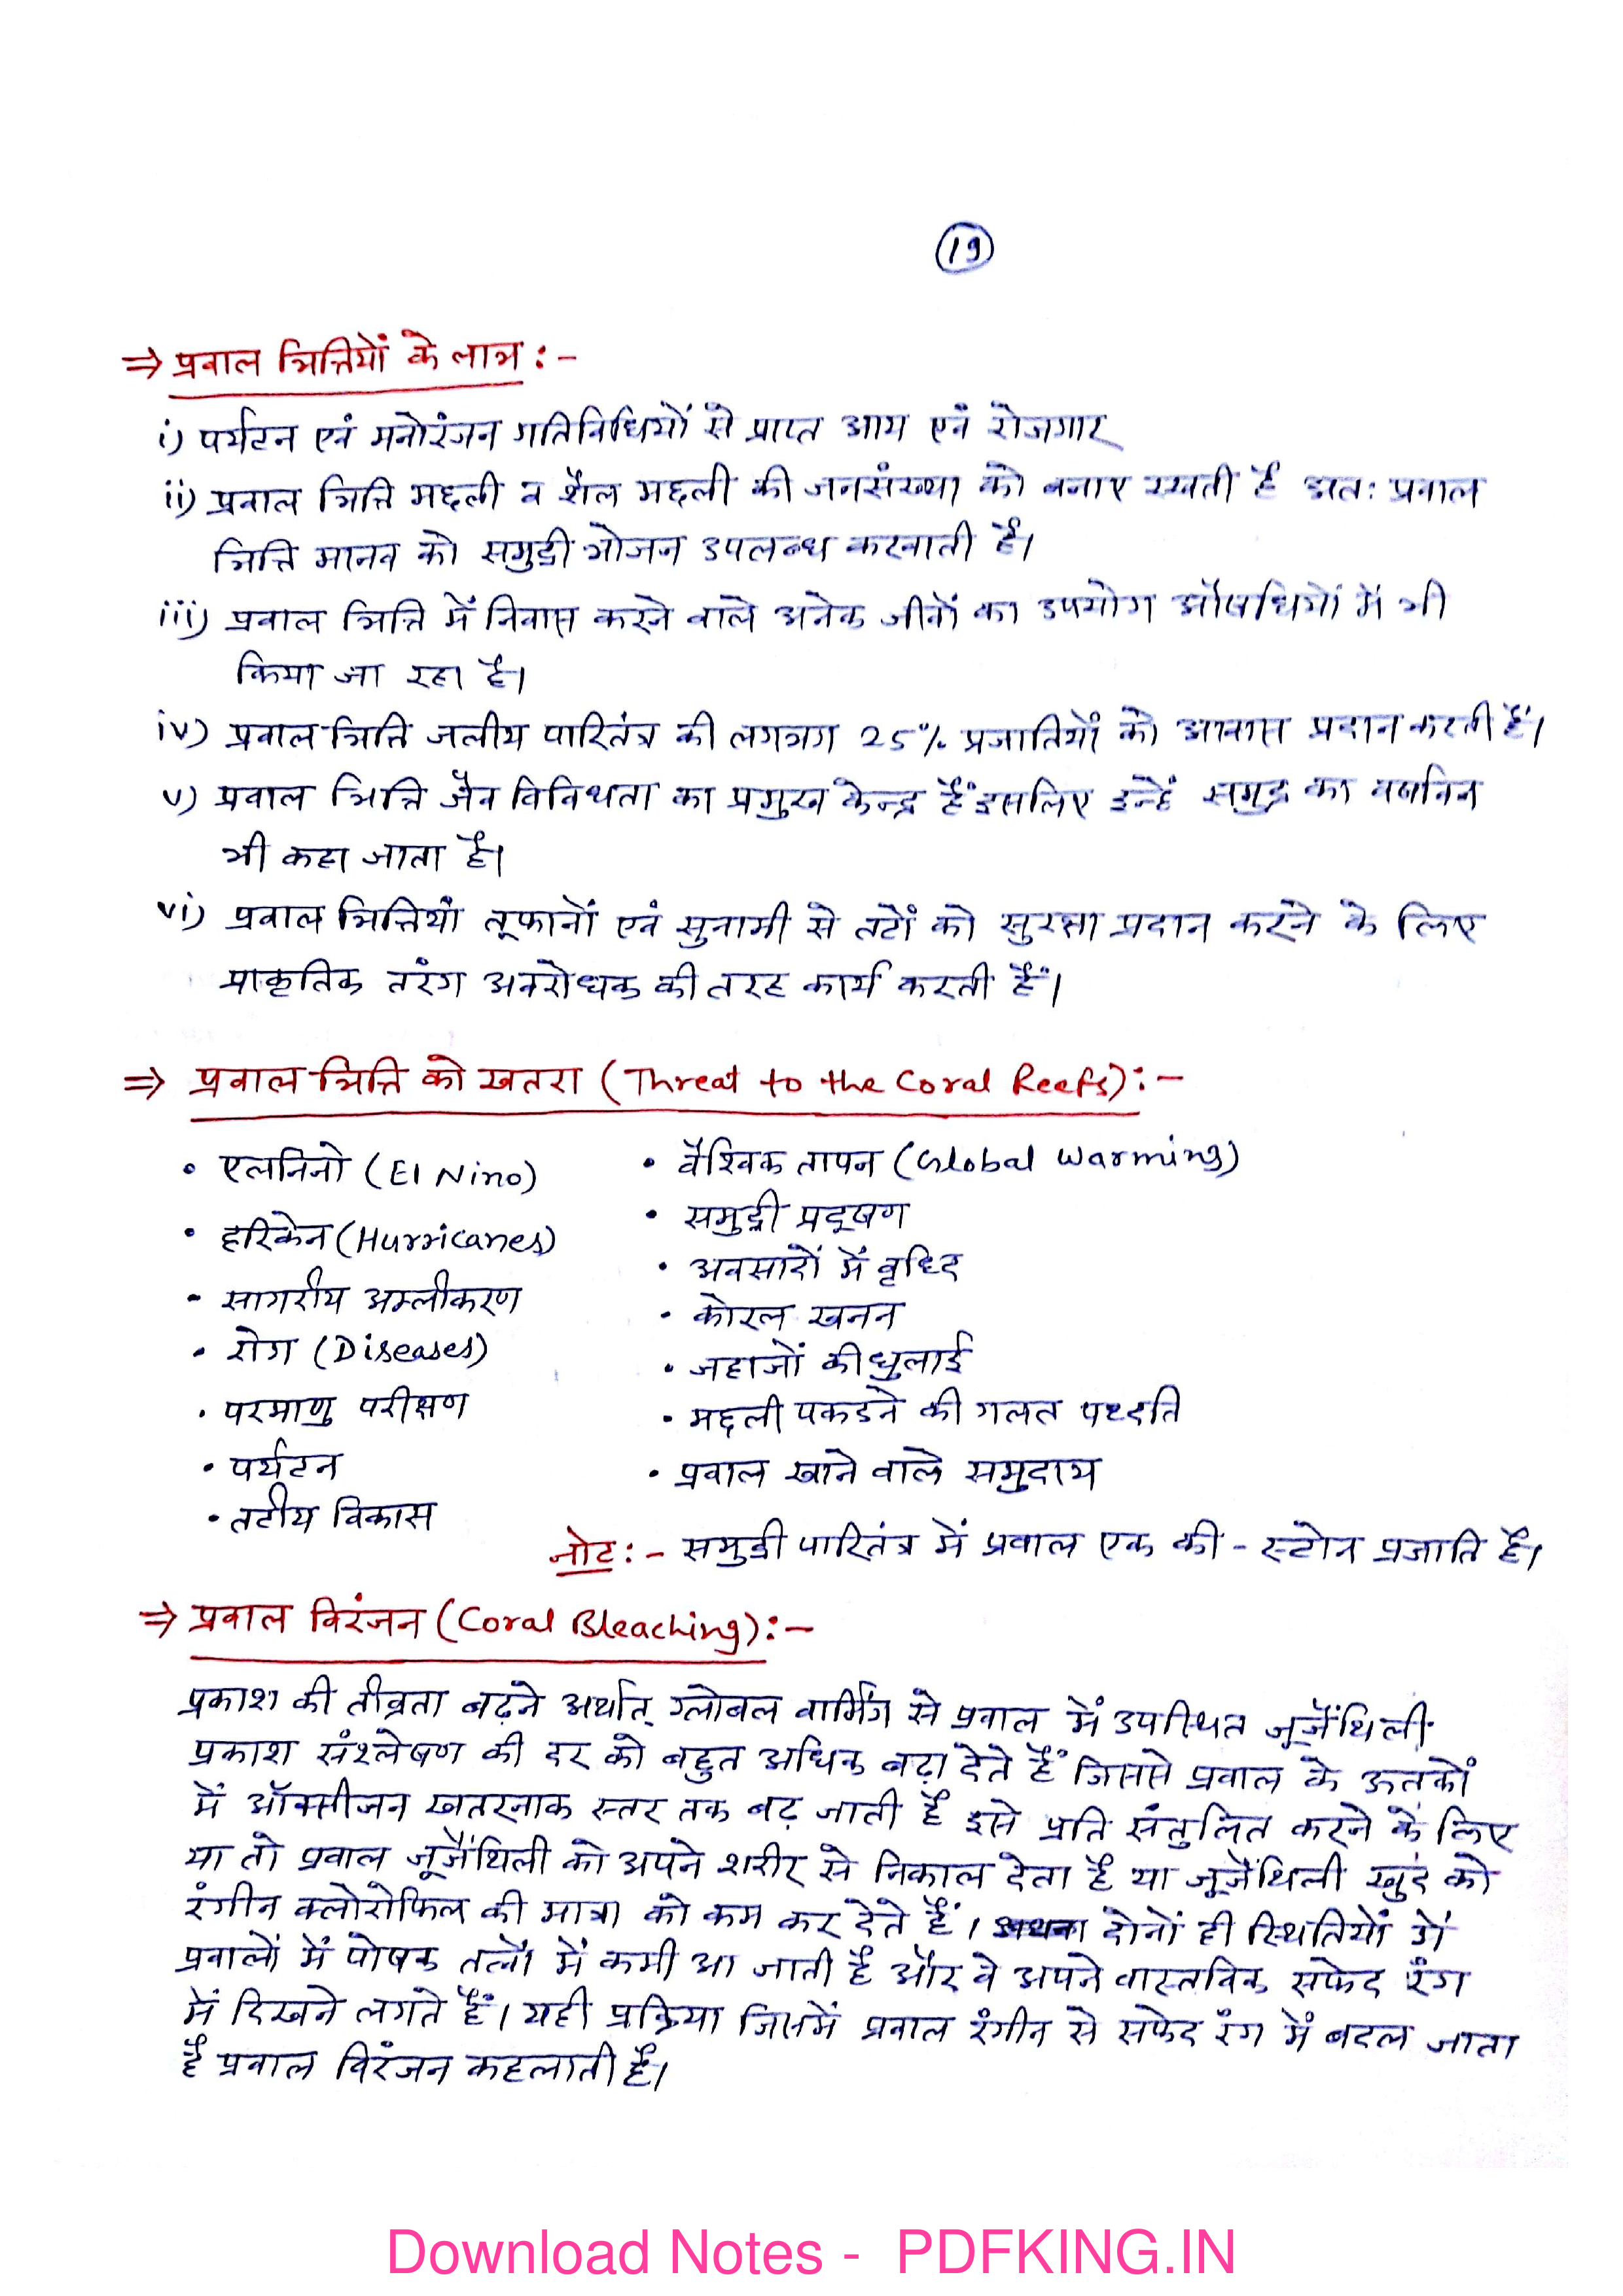 19
⇒ प्रवाल भित्तियों के लाभ :-
i) पर्यटन एवं मनोरंजन गतिविधियों से प्राप्त आय एवं रोजगार
ii) प्रवाल भित्ति मछली व शैल मछली की जनसंख्या को बनाए रखती है अतः प्रवाल
भित्ति मानव को समुद्री भोजन उपलब्ध करवाती है।
iii) प्रवाल भित्ति में निवास करने वाले अनेक जीवों का उपयोग औषधियों में भी
किया जा रहा है।
iv) प्रवाल भित्ति जलीय पारितंत्र की लगभग 25% प्रजातियों को आवास प्रदान करती हैं।
v) प्रवाल भित्ति जैव विविधता का प्रमुख केन्द्र हैं इसलिए इन्हें समुद्र का वर्षावन
भी कहा जाता है।
vi) प्रवाल भित्तियां तूफानों एवं सुनामी से तटों को सुरक्षा प्रदान करने के लिए
प्राकृतिक तरंग अवरोधक की तरह कार्य करती हैं।
⇒ प्रवाल भित्ति को खतरा (Threat to the Coral Reefs):-
• एलनिनो (El Nino)
• हरिकेन (Hurricanes)
- सागरीय अम्लीकरण
• रोग (Diseases)
• परमाणु परीक्षण
• पर्यटन
• तटीय विकास
• वैश्विक तापन (Global Warming)
• समुद्री प्रदूषण
• अवसादों में वृद्धि
• कोरल खनन
• जहाजों की धुलाई
• मछली पकडने की गलत पध्दति
• प्रवाल खाने वाले समुदाय
नोट :- समुद्री पारितंत्र में प्रवाल एक की - स्टोन प्रजाति है।
⇒ प्रवाल विरंजन (Coral Bleaching):-
प्रकाश की तीव्रता बढ़ने अर्थात् ग्लोबल वार्मिंग से प्रवाल में उपस्थित जूजैंथिली
प्रकाश संश्लेषण की दर को बहुत अधिक बढ़ा देते हैं जिससे प्रवाल के ऊतकों
में ऑक्सीजन खतरनाक स्तर तक बढ़ जाती है इसे प्रति संतुलित करने के लिए
या तो प्रवाल जूजैंथिली को अपने शरीर से निकाल देता है या जूजैंथिली खुद को
रंगीन क्लोरोफिल की मात्रा को कम कर देते हैं। दोनों ही स्थितियों में
प्रवालों में पोषक तत्वों में कमी आ जाती है और वे अपने वास्तविक सफेद रंग
में दिखने लगते हैं। यही प्रक्रिया जिसमें प्रवाल रंगीन से सफेद रंग में बदल जाता
है प्रवाल विरंजन कहलाती है।
Download Notes - PDFKING.IN